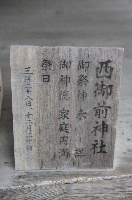 西御前神社
御祭神
御神徳 家庭円満
祭日
三月二十八日、十二月二十日